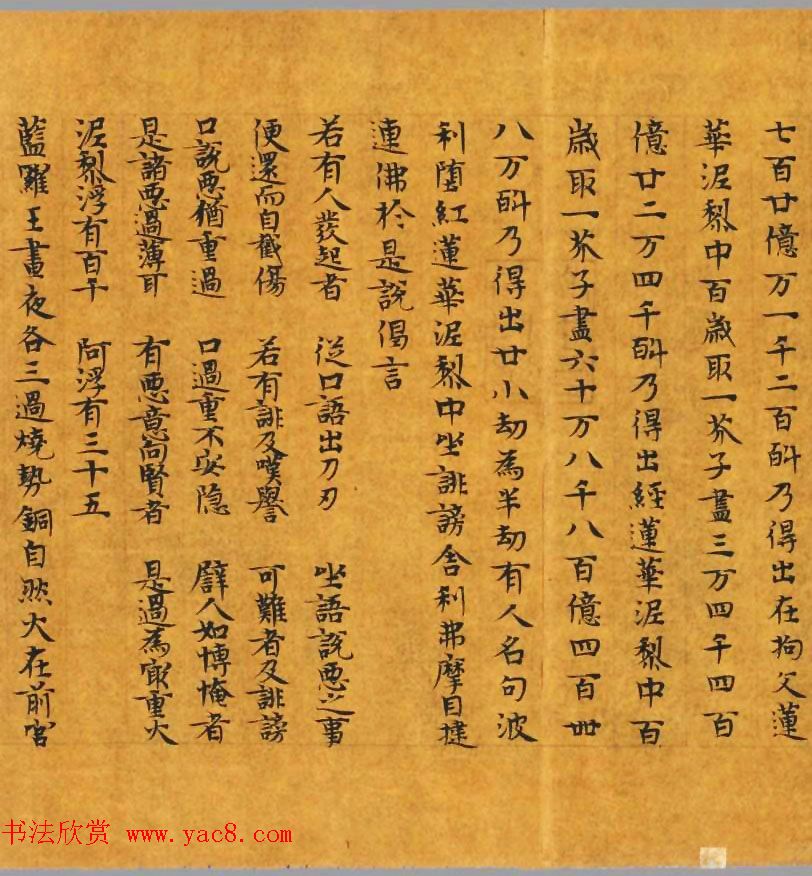 七百廿億万一千二百㪷乃得出在拘文蓮
華泥犁中百歲取一芥子盡三万四千四百
億廿二万四千㪷乃得出經蓮華泥犁中百
歲取一芥子盡六十万八千八百億四百卌
八万㪷乃得出廿小劫為半劫有人名句波
利墮紅蓮華泥犁中坐誹謗舍利弗摩目揵
連佛於是說偈言
若有人發起者 從口語出刀刃 坐語說惡之事
便還而自截傷 若有誹及嘆譽 可難者及誹謗
口說惡猶重過 口過重不安隐 譬人如博掩者
是諸惡過薄耳 有惡意向賢者 是過為㝡重大
泥犁浮有百千 阿浮有三十五
藍羅王晝夜各三過燒勢銅自然火在前宮
书法欣赏 www.yac8.com